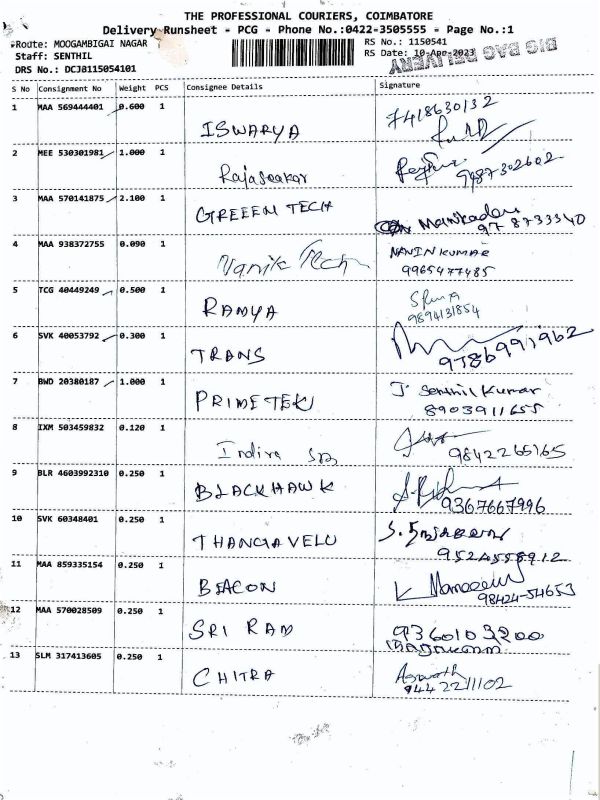 THE PROFESSIONAL COURIERS, COIMBATORE
Delivery Runsheet - PCG - Phone No.:0422-3505555 - Page No.:1
Route: MOOGAMBIGAI NAGAR
RS No.: 1150541
Staff: SENTHIL
RS Date: 10-Apr-2023
BIG BAG DELIVERY
DRS No.: DCJ8115054101
S No Consignment No Weight PCS Consignee Details Signature
1 MAA 569444401 0.600 1 ISWARYA 7418630132
2 MEE 530301981 1.000 1 Rajasekar 9487302602
3 MAA 570141875 2.100 1 GREEEN TECH Manikadan
978733340
4 MAA 938372755 0.090 1 Vanik Tech NAVIN KUMAR
9965477485
5 TCG 40449249 0.500 1 RAMYA
9894131854
6 SVK 40053792 0.300 1 TRANS 9786991962
7 BWD 20380187 1.000 1 PRIMETEK J Senthil Kumar
8903911655
8 IXM 503459832 0.120 1 Indira 9842265165
9 BLR 4603992310 0.250 1 BLACKHAWK 9367667996
10 SVK 60348401 0.250 1 THANGAVELU
9524558912
11 MAA 859335154 0.250 1 BEACON
98424-54653
12 MAA 570028509 0.250 1 SRI RAM 9360103200
13 SLM 317413605 0.250 1 CHITRA Aswath
9442211102